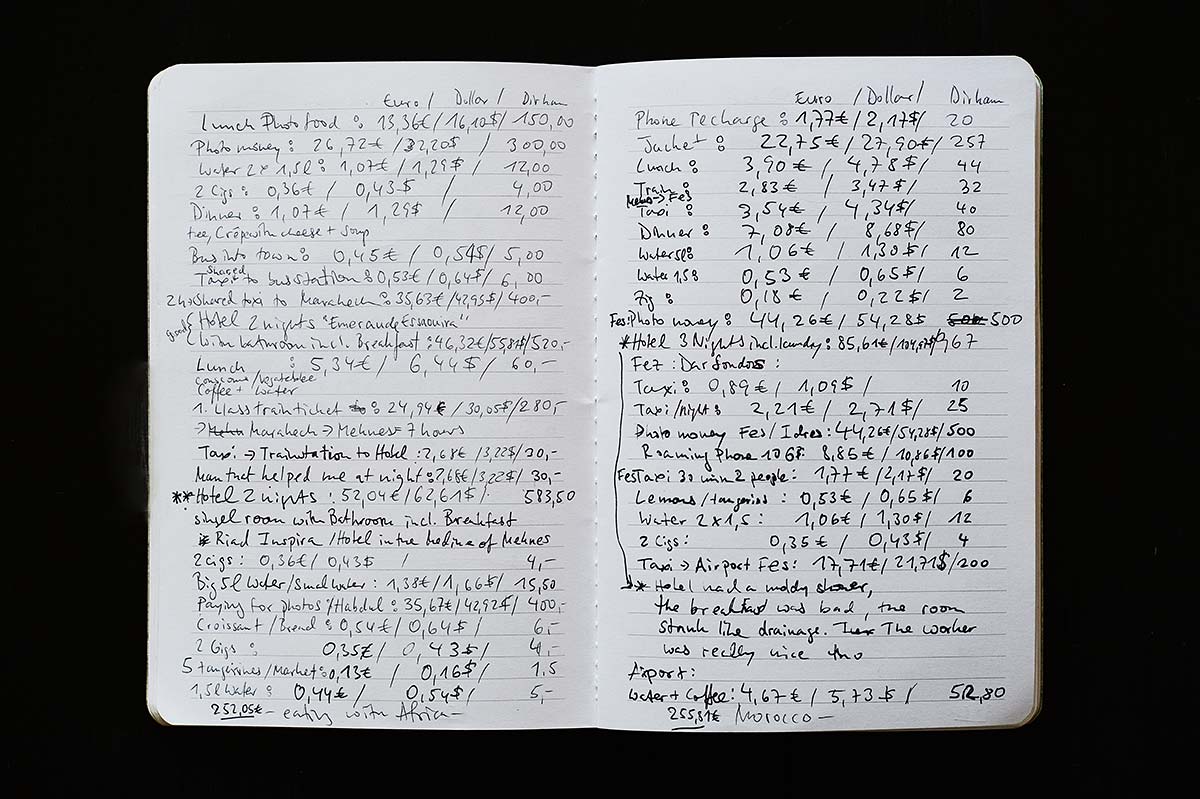 Euro / Dollar / Dirham
Lunch Photo food : 13,36€ / 16,10$ / 150,00
Photo money : 26,72€ / 32,20$ / 300,00
Water 2x 1,5l : 1,07€ / 1,29$ / 12,00
2 Cigs : 0,36€ / 0,43$ / 4,00
Dinner : 1,07€ / 1,29$ / 12,00
tee, Crêpe with cheese + soup
Bus into town : 0,45€ / 0,54$ / 5,00
shared
Taxi to bus station : 0,53€ / 0,64$ / 6,00
shared taxi to Marakech : 35,63€ / 42,93$ / 400,-
good
Hotel 2 nights "Emeraude Essaouira"
with bathroom incl. Breakfast : 46,32€ / 55,81$ / 520,-
Lunch : 5,34€ / 6,44$ / 60,-
couscous / vegetables
Coffee + water
1. Class train ticket : 24,94€ / 30,05$ / 280,-
→ Marakech → Mehnes = 7 hours
Taxi → Trainstation to Hotel : 2,68€ / 3,22$ / 30,-
Man that helped me at night : 2,68€ / 3,22$ / 30,-
** Hotel 2 nights : 52,04€ / 62,61$ / 583,50
singel room with Bathroom incl. Breakfast
* Riad Inspira / Hotel in the Medina of Mehnes
2 cigs : 0,36€ / 0,43$ / 4,-
Big 5l water / Small water : 1,38€ / 1,66$ / 15,50
Paying for photos / Habdul : 35,67€ / 42,92$ / 400,-
Croissant / Bread : 0,54€ / 0,64$ / 6,-
2 Gigs : 0,35€ / 0,43$ / 4,-
5 tangerines / Market : 0,13€ / 0,16$ / 1.5
1,5l water : 0,44€ / 0,54$ / 5,-
252,05€ - eating with Africa -
Euro / Dollar / Dirham
Phone recharge : 1,77€ / 2,17$ / 20
Jacket : 22,75€ / 27,90$ / 257
Lunch : 3,90€ / 4,78$ / 44
Train : 2,83€ / 3,47$ / 32
Mehnes → Fes
Taxi : 3,54€ / 4,34$ / 40
Dinner : 7,08€ / 8,68$ / 80
Water 5l : 1,06€ / 1,30$ / 12
Water 1,5l : 0,53€ / 0,65$ / 6
Zig : 0,18€ / 0,22$ / 2
Fes: Photo money : 44,26€ / 54,28$ 500 500
* Hotel 3 Nights incl. laundry : 85,61€ / 104,97$ / 967
Fez : Dar Sondos :
Taxi : 0,89€ / 1,09$ / 10
Taxi / night : 2,21€ / 2,71$ / 25
Photo money Fes / Idres : 44,26€ / 54,28$ / 500
Roaming Phone 10 GB : 8,85€ / 10,86$ / 100
Fes Taxi 30 min 2 people : 1,77€ / 2,17$ / 20
Lemons / tangerins : 0,53€ / 0,65$ / 6
Water 2 x 1,5 : 1,06€ / 1,30$ / 12
2 Cigs : 0,35€ / 0,43$ / 4
Taxi → Airport Fes : 17,71€ / 21,71$ / 200
→ * Hotel had a moldy shower,
the breakfast was bad, the room
stunk like drainage. The worker
was really nice tho
Airport :
Water + Coffee : 4,67€ / 5,73$ / 52,80
255,31€ Morocco -